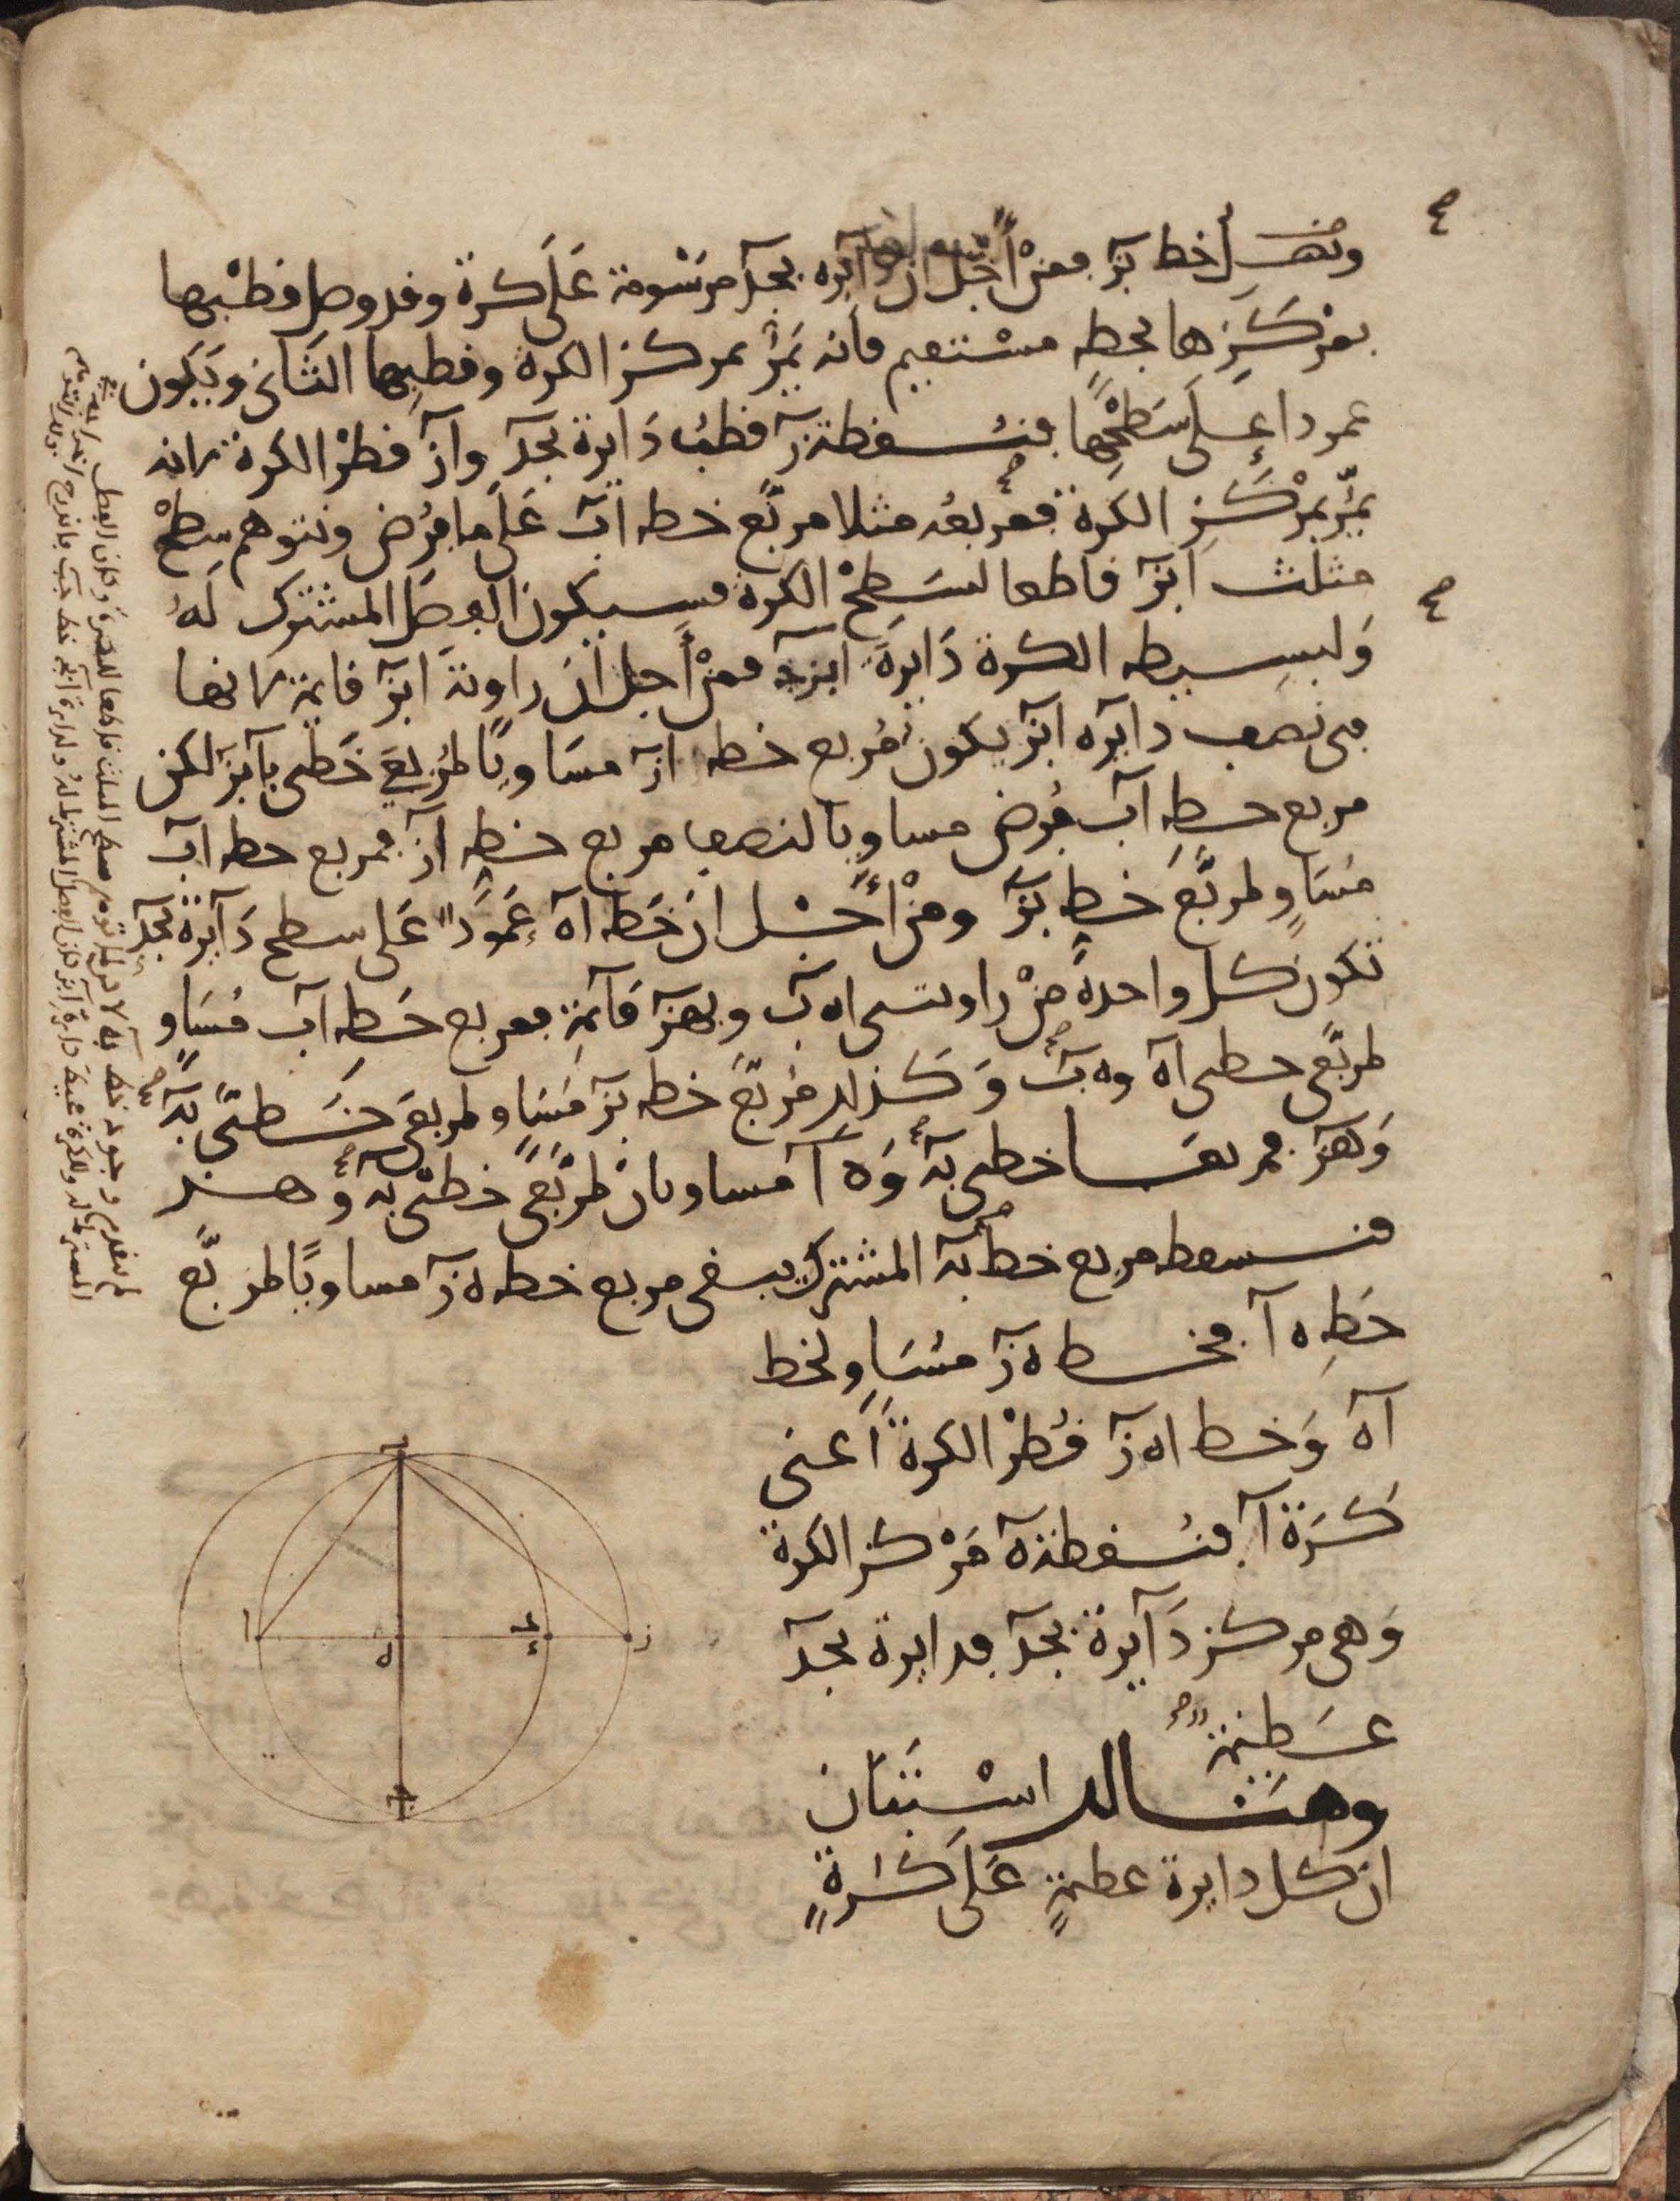 ونصل خط بز فمن أجل ان دايرة بجد مرسومة على كرة وقد وصل قطبها
بمركزها بخط مستقيم فانه يمر بمركز الكرة وقطبها الثاني ويكون
عمودا على سطحها فنقطة ز قطب دايرة بجد واز قطر الكرة لانه
يمر بمركز الكرة فمربعه مثلا مربع خط اب على ما فرض ونتوهم سطح
مثلث ابز قاطعا لسطح الكرة فسيكون الفصل المشترك له
ولبسيط الكرة دايرة ابزج فمن أجل ان زاوية ابز قايمة لانها
في نصف دايرة ابز يكون مربع خط از مساويا لمربعي خطي با بز لكن
مربع خط اب فرض مساويا لنصف مربع خط از فمربع خط اب
مساو لمربع خط بز ومن أجل ان خط اه عمود على سطح دايرة بجد
تكون كل واحدة من زاويتي اه ب وبهز قايمة فمربع خط اب مساو
لمربعي خطي اه وه ب وكذلك مربع خط بز مساو لمربعي خطي به
وهز فمربعا خطي به وه ا مساويان لمربعي خطي به وهز
فنسقط مربع خط به المشترك يبقى مربع خط ه ز مساويا لمربع
خط ه ا فخط ه ز مساو لخط
اه وخط اه ز قطر الكرة أعني
كرة ا فنقطة ه مركز الكرة
وهي مركز دايرة بجد فدايرة بجد
عظيمة
وهنالك استبان
ان كل دايرة عظيمة على كرة
ب
ا
ه
ز
ج